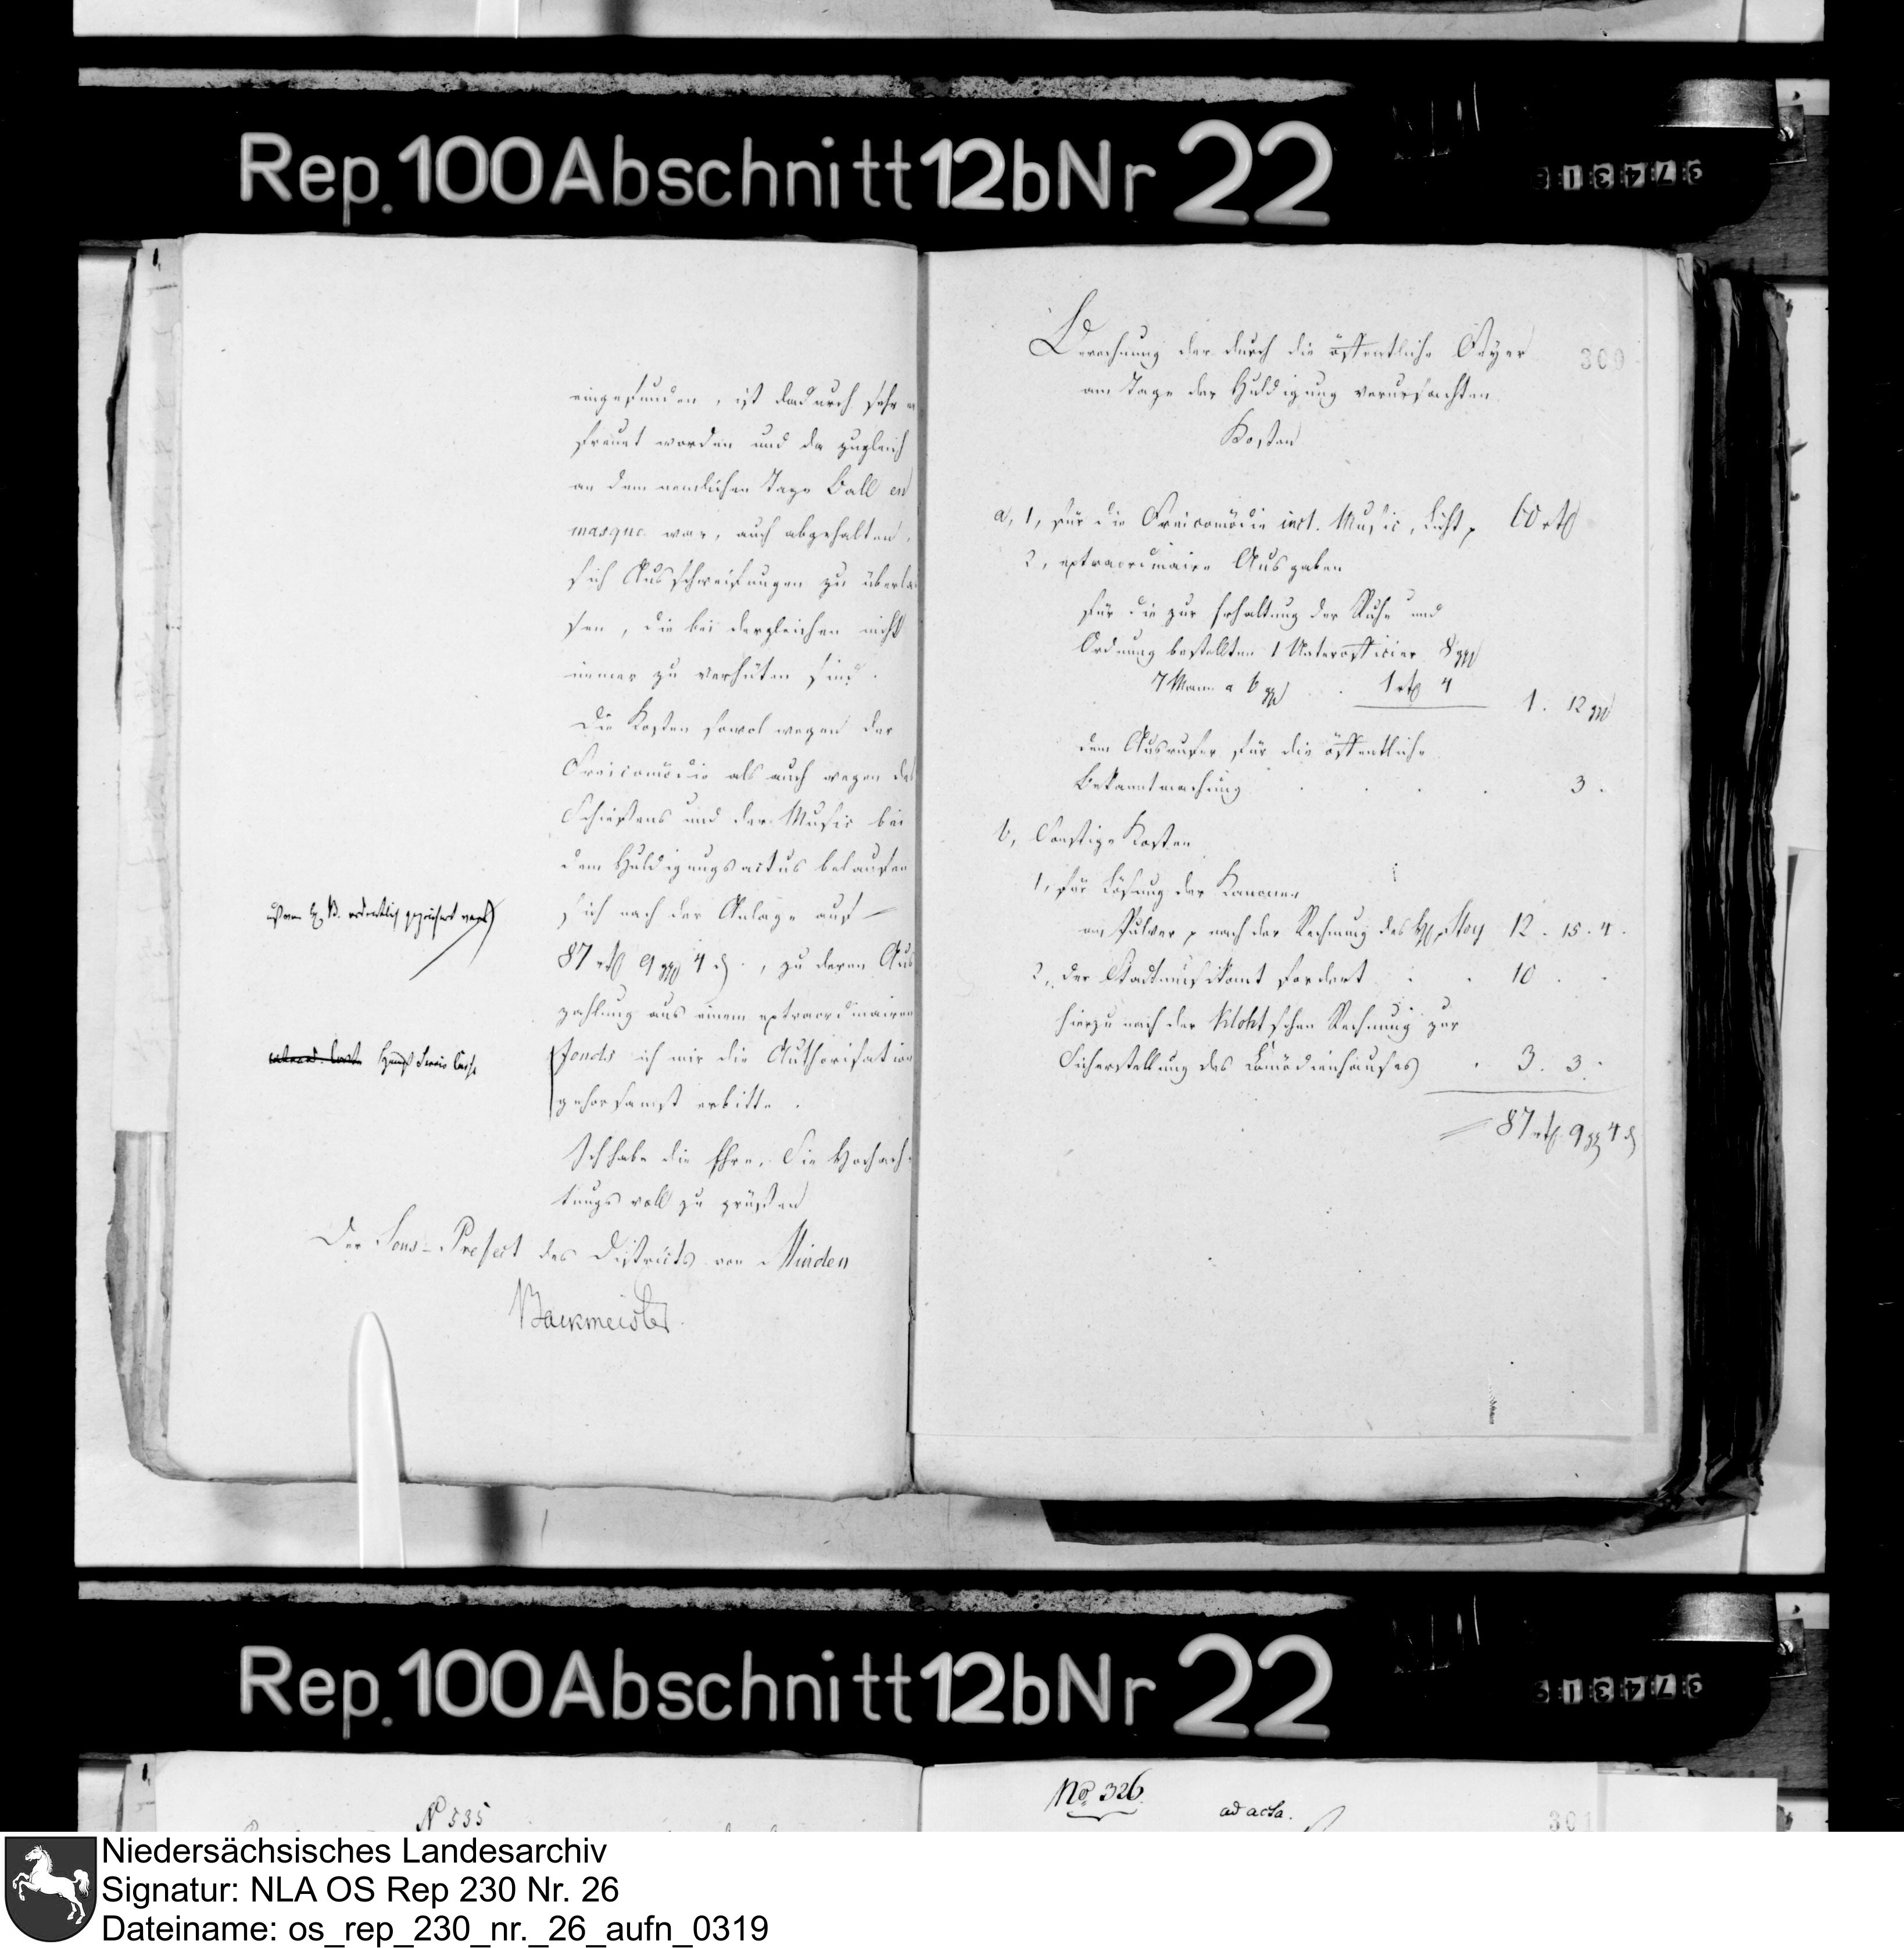 Rep. 100 Abschnitt 12b Nr 22
eingefunden, ist dadurch sehr er
freuet worden und da zugleich
an dem nemlichen Tage Ball en
masque war, auch abgehalten,
sich Ausschweifungen zu überla
sen, die bei dergleichen nicht
immer zu verhüten sind.
Die Kosten sowol wegen der
Freicomödie als auch wegen des
Schießens und der Music bei
dem Huldigungsactus belaufen
sich nach der Anlage auf
87 rtl 9 ggl 4 d., zu deren Aus
zahlung aus einem extraordinairen
fonds ich mir die Authorisation
gehorsamst erbitte.
Haupt
Ich habe die Ehre, Sie Hochach-
tungsvoll zu grüßen
Der Sous-Prefect des Districts von Minden
Backmeister
300
Berechnung der durch die öffentliche Feyer
am Tage der Huldigung verursachten
Kosten
a, 1, für die Freicomödie incl. Music, Licht 60 rtl
2, extraordinaire Ausgaben
für die zur Erhaltung der Ruhe und
Ordnung bestellten 1 Unterofficier 8 ggl
7 Mann a 4 ggl . . 1 rtl 4
1. 12 ggl
dem Ausrufer für die öffentliche
Bekanntmachung . . . . 3.
b, Sonstige Kosten
1, für Lösung der Kanonen
an Pulver nach der Rechnung des H. Moy 12. 15. 4.
2, der Stadtmusikant fordert . . 10 . .
hierzu nach der schen Rechnung zur
Sicherstellung des Comödienhauses . 3. 3.
87 rtl 9 ggl 4 d
Rep. 100 Abschnitt 12b Nr 22
N 535
No. 326.
ad acta.
301
Niedersächsisches Landesarchiv
Signatur: NLA OS Rep 230 Nr. 26
Dateiname: os_rep_230_nr._26_aufn_0319